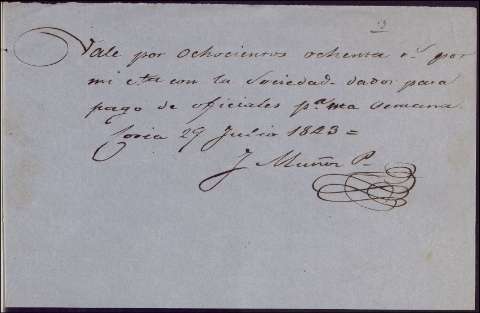 2
Vale por Ochocientos ochenta r.s por
mi c.ta con la Sociedad dados para
pago de oficiales p.a una semana.
Coria 29 Julio 1843 =
J Muñoz P.